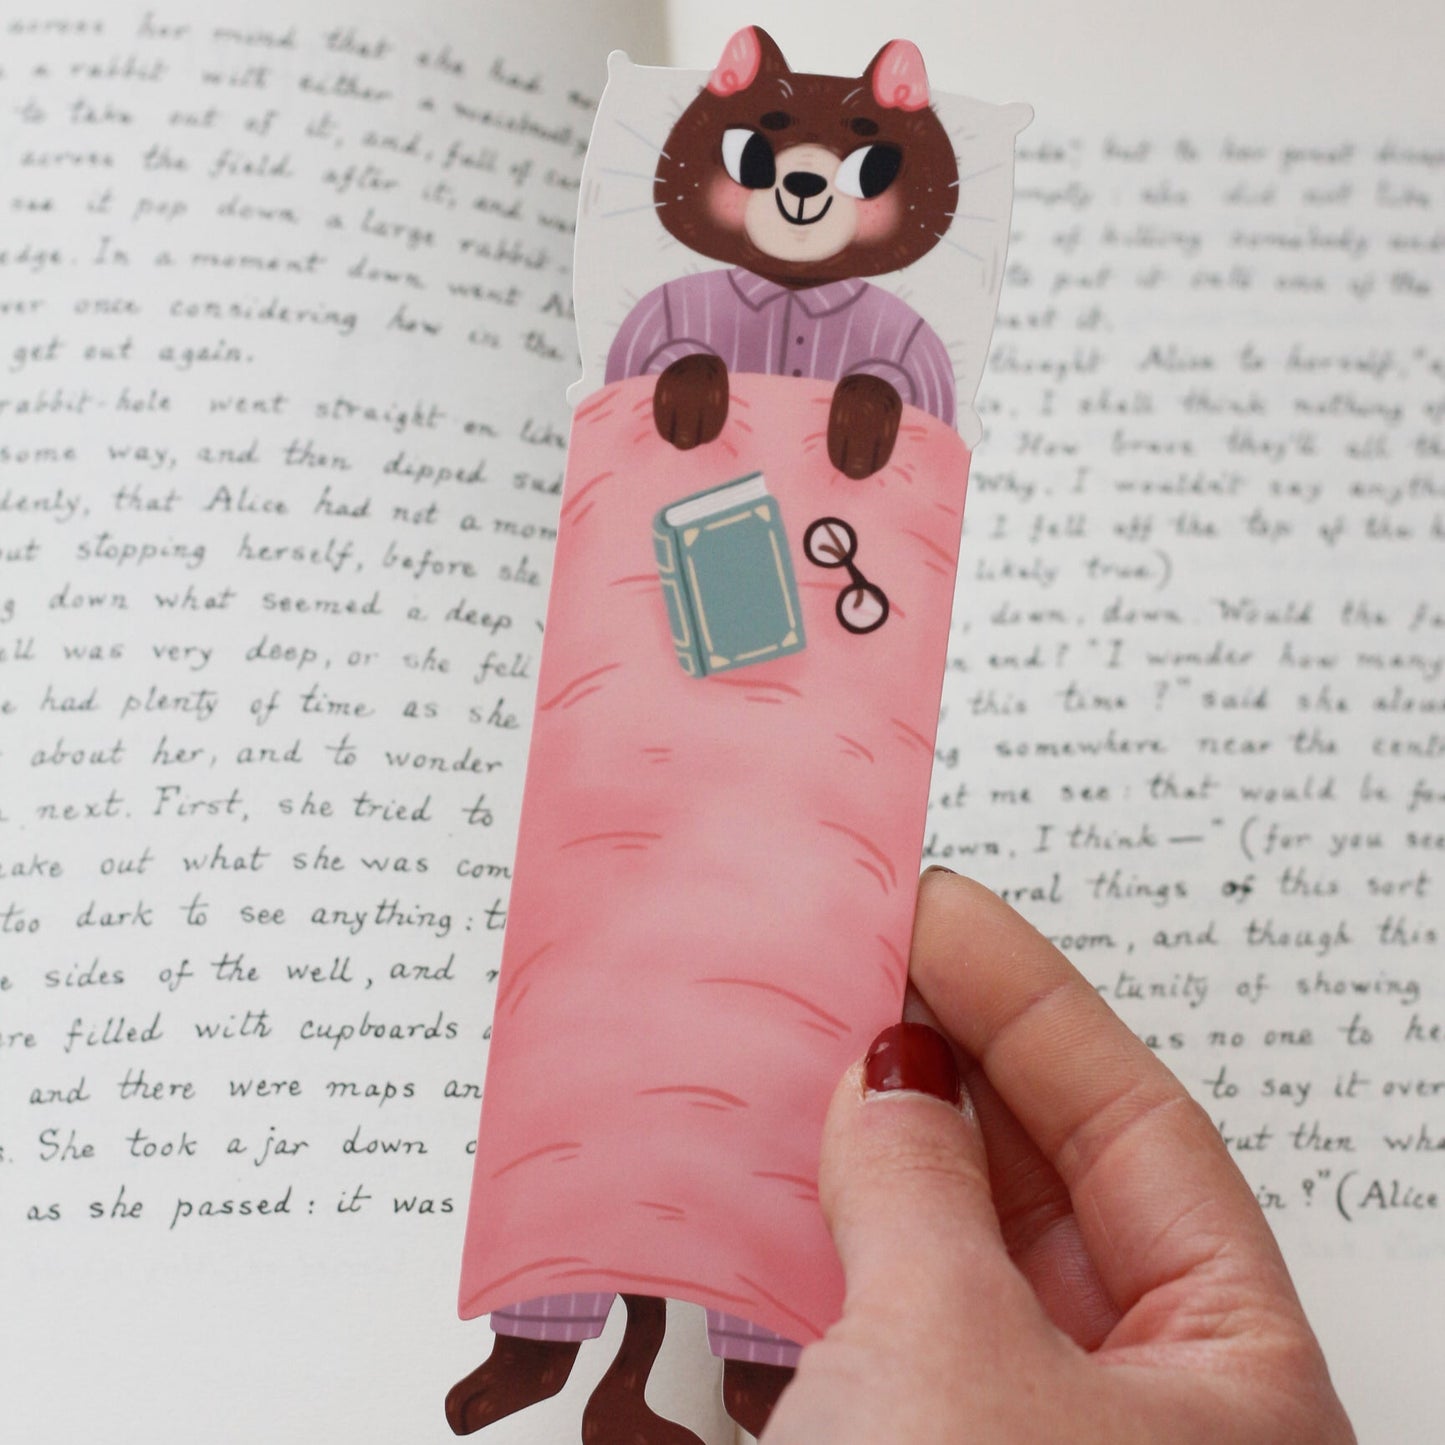 across her mind that she had
a rabbit with either a waistcoat-
to take out of it, and, full of
across the field after it, and was
see it pop down a large rabbit-
edge. In a moment down went Al
ver once considering how in the
get out again.
rabbit-hole went straight on like
some way, and then dipped sud
denly, that Alice had not a mom
out stopping herself, before she
g down what seemed a deep
ell was very deep, or she fell
e had plenty of time as she
about her, and to wonder
next. First, she tried to
make out what she was com
too dark to see anything: th
e sides of the well, and
re filled with cupboards
and there were maps an
s. She took a jar down
as she passed: it was
but to her great
she did not like
of killing somebody
to put it into one of the
past it.
thought Alice to herself, "
I shall think nothing of
How brave they'll all th
Why, I wouldn't say anyth
I fell off the top of the h
likely true.)
, down, down. Would the fa
n end? "I wonder how many
this time?" said she alou
ng somewhere near the cent
Let me see: that would be fo
down, I think—" (for you see
eral things of this sort
room, and though this
rtunity of showing
as no one to he
to say it over
but then wha
in?" (Alice